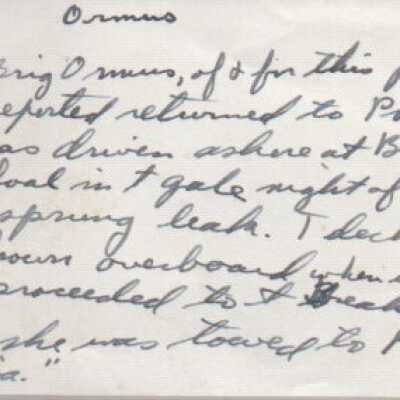 Ormus
Brig Ormus, of & for this p
eported returned to P
as driven ashore at B
oal in t gale night of
sprung leak. T deck
own overboard when
proceeded to t Break
she was towed to P
a."